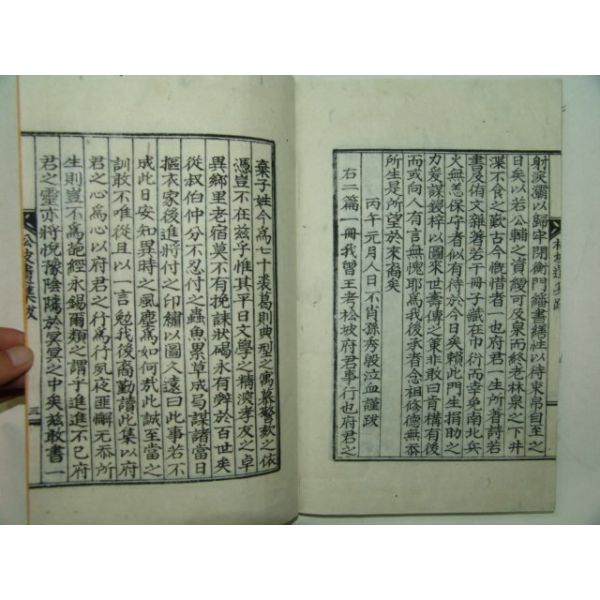 射淚灑以歸牢閉衡門籍書繕性以待東帛自至之
日矣以若公輔之資綆可及泉而終老林泉之下井
渫不食之歎古今慨惜者一也府君一生所著詩若
書及侑文雜著若干冊子藏在巾衍而幸免南北兵
火無恙保守者似有待於今日矣賴此門生捐助之
力爰謀鋟梓以圖來世壽傳之策非敢曰肯構有後
而或向人有言無愧耶爲我後承者念祖修德無忝
所生是所望於來裔矣
丙午元月人日不肖孫秀殷泣血謹跋
右二篇一冊我曾王考松坡府君事行也府君之
棄子姓今爲七十裘葛則典型之寓慕警欬之依
憑豈不在玆乎惟其平日文學之精溲孝友之卓
異鄉里老宿莫不有挽誄狀碣永有辭於百世矣
從叔伯仲分不忍付之蟲魚累草成局謀諸當日
摳衣家後進將付之印繡以圖久遠曰此事若不
成此日安知異時之風塵爲如何哉此誠至當之
訓敢不唯從且以一言勉我後裔勤讀此集以府
君之心爲心以府君之行爲行夙夜匪懈无忝所
生則豈不爲葩經永錫爾類之謂子進進不已府
君之靈亦將悅豫陰隲於冥冥之中矣玆敢書一
松坡遺集跋
三